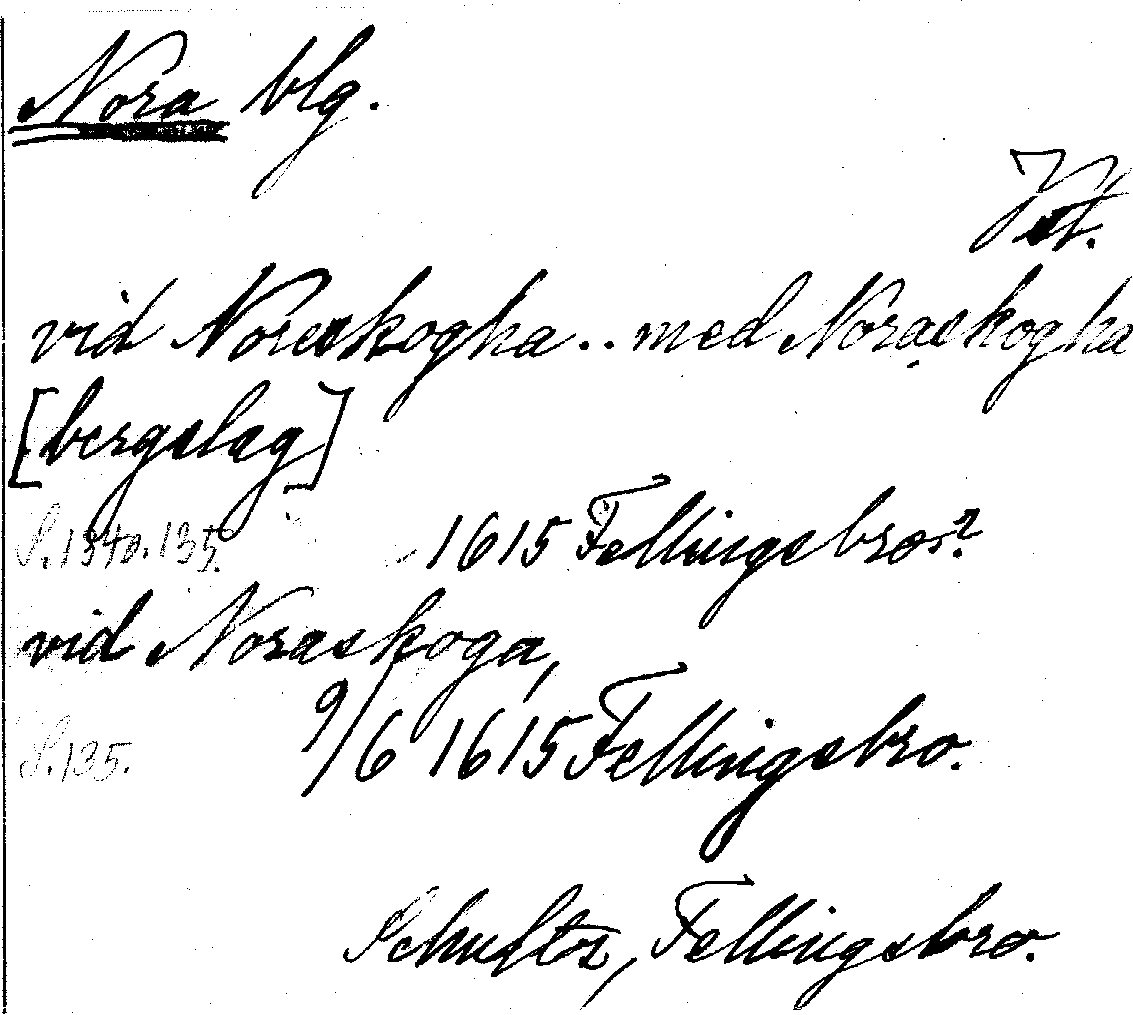 Nora blg.
vid Noreskogha .. med Noraskogha
[bergslag]
S. 134 o. 135. 1615 Fellingsbro.?
vid Noraskoga,
S. 135. 9/6 1615 Fellingsbro.
Schultz, Fellingsbro.